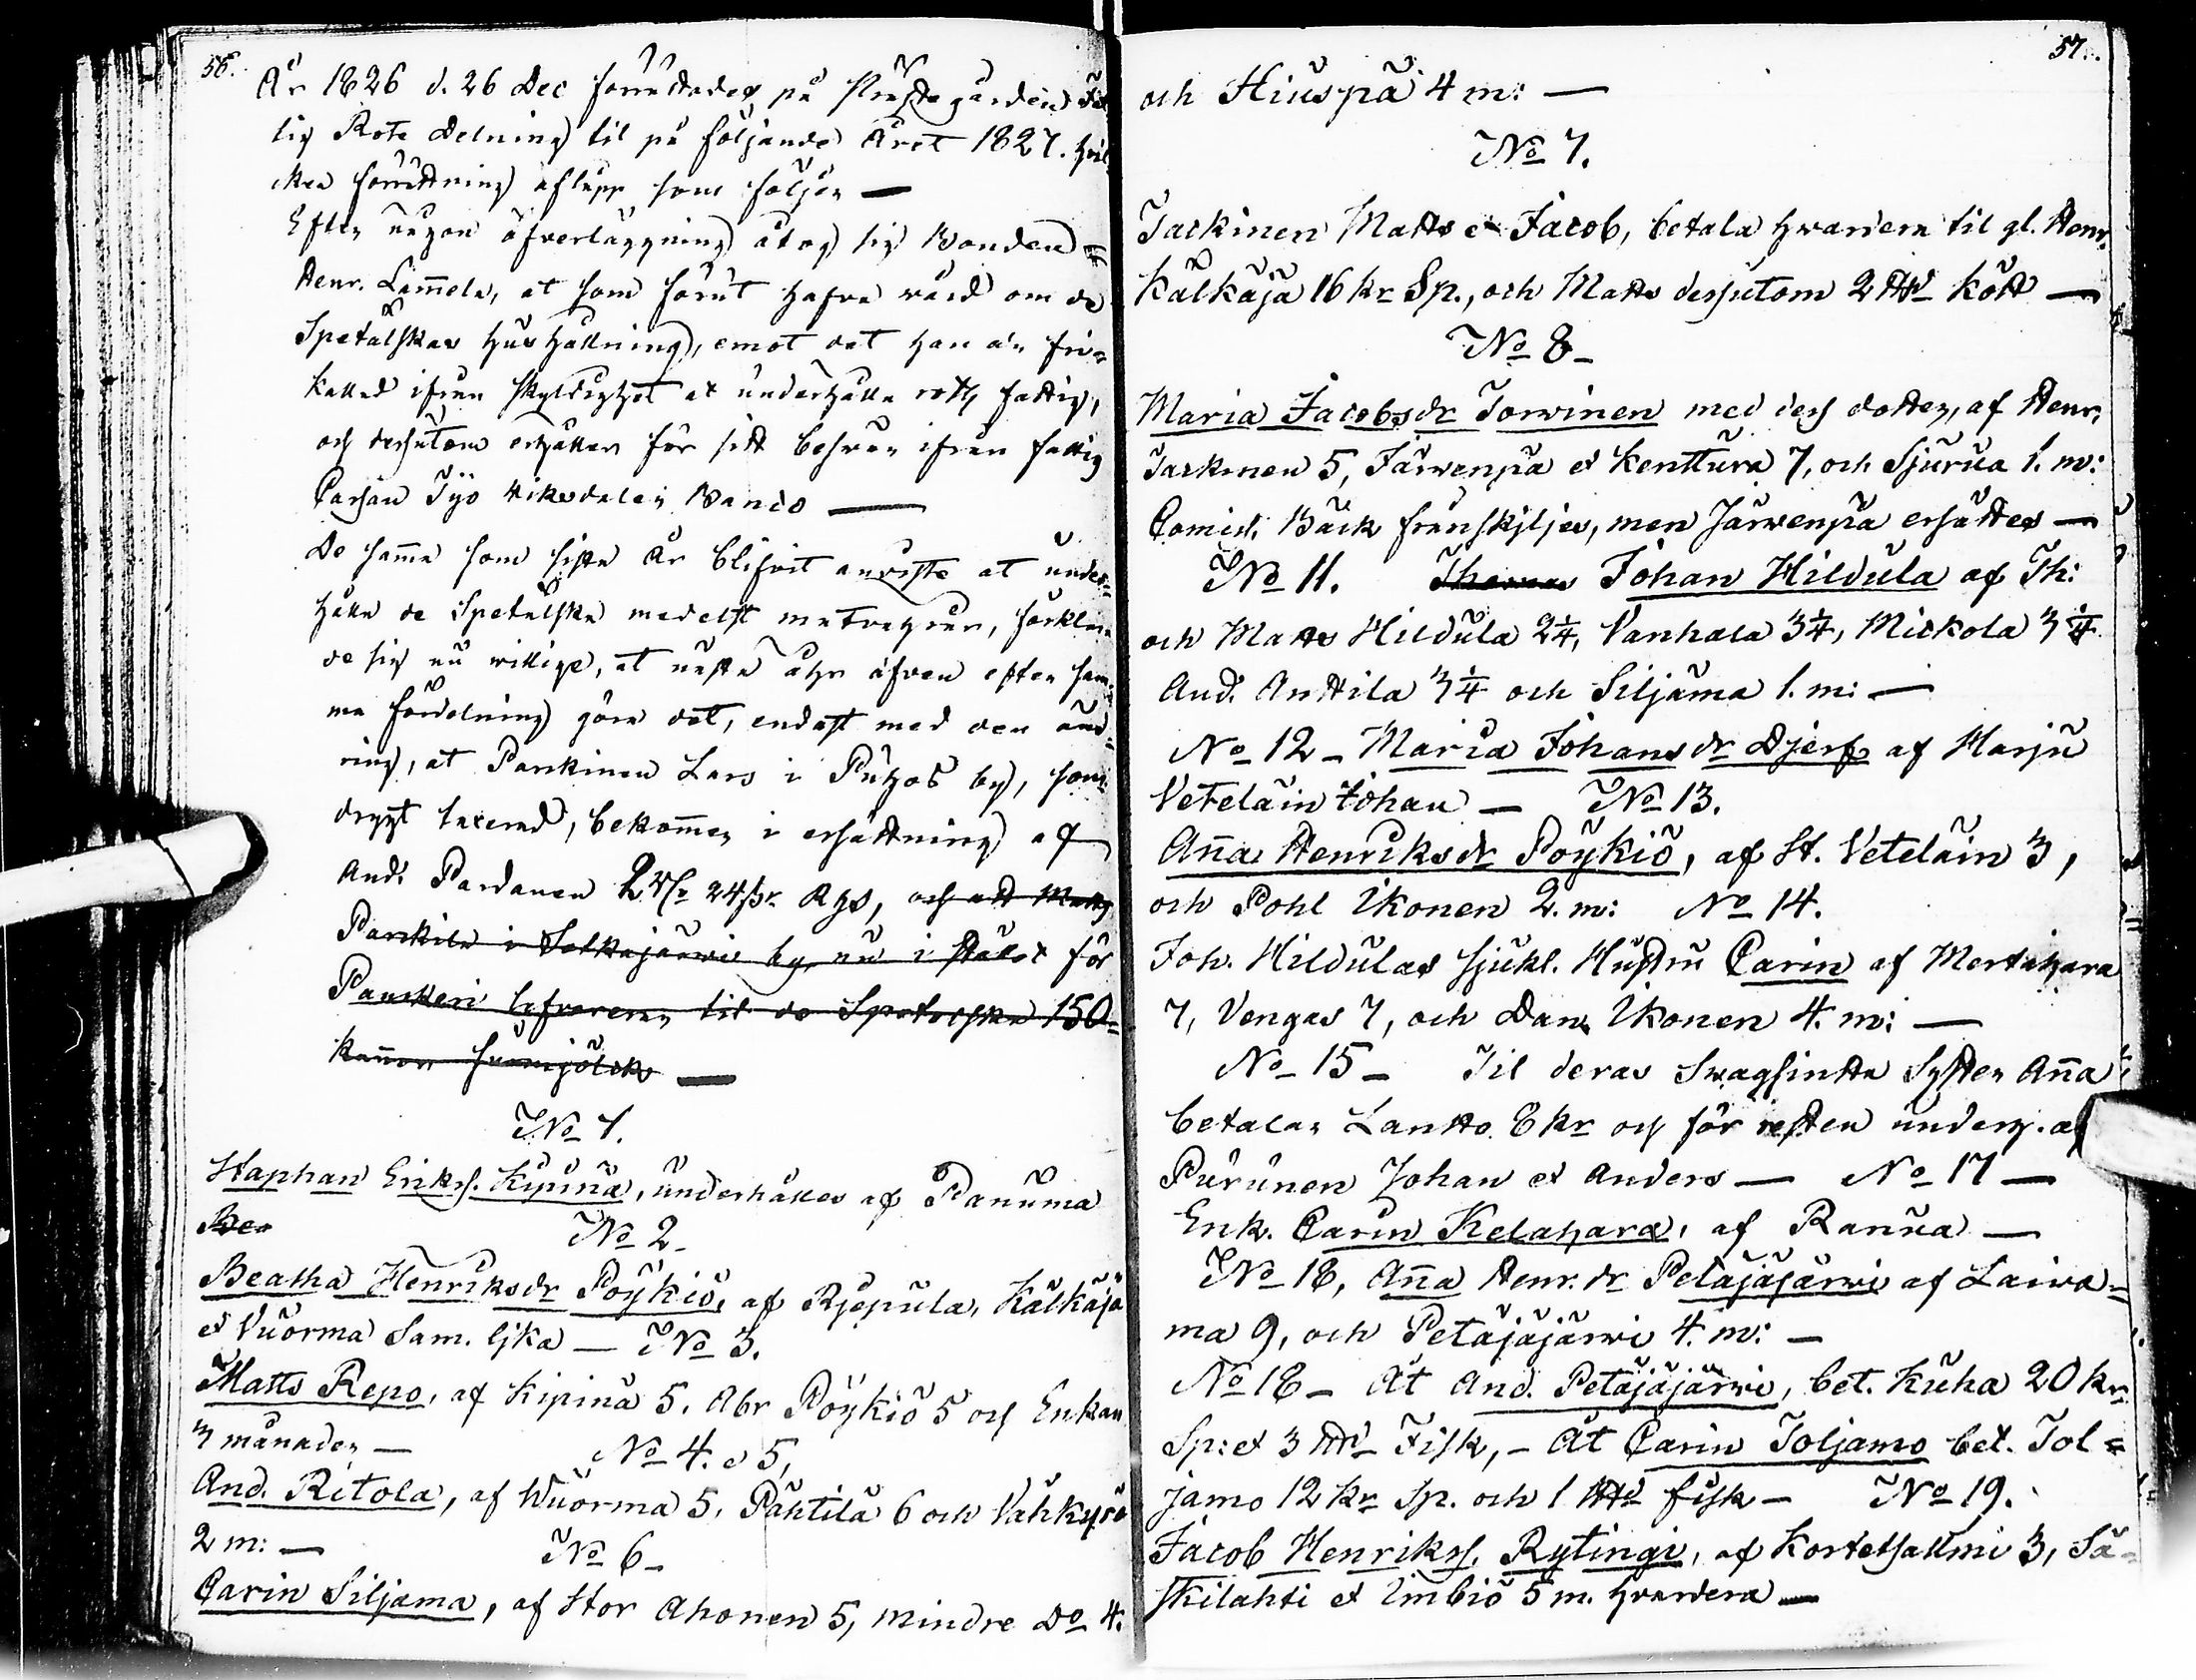 56.
År 1826 d. 26 Dec förrättades på Prästegården Fat
tig Rote delning til på följande Året 1827. hvil
ken förrättning aflupp som följer —
Efter någon öfverläggning åtog sig Bonden
Henr. Lam̅ela, at som förut hafva vård om de
Spetälskas hushållning, emot det han är fri=
kallad ifrån skyldighet at underhålla rote fattig,
och dessutom erhåller för sitt besvär ifrån fattig
Cassan Tjo Riksdaler Banco —
De sam̅a som sista År blifvit anviste at under=
hålla de Spetälska medelst matvahror, förklara
de sig nu willige, at nästa åhr äfven efter sam=
ma fördelning göra det, endast med den änd=
ring, at Parkinen Lars i Puhos by, som
drygt taxerad, bekom̅er i ersättning af
And. Pardanen 2 24 Rgs, och att Matts
Parkila i by nu i stället för
lefvererar til de Spetelska 150=
kan̅or surmjölck —
No 1.
Staphan Eriks. Kipinä, underhålles af Panuma
Bea
No 2 -
Beatha Henriksdr Pöykiö, af Rjepula, Kälkäjä
et Vuorma Sam. lika — No 3.
Matts Repo, af Kipinä 5. Abr Pöykiö 5 och Enkan
7 månader —
No 4. o 5.
And. Ritola, af Wuorma 5. Pähtilä 6 och Vähkyrö
2 m: —
No 6 -
Carin Siljama, af Stor Ahonen 5, mindre Do 4.
57.
och Hiuspä 4 m: —
No 7.
Tackinen Matts et Jacob, betala hvardera til gl. Henr.
Kälkäjä 16 kr Sp., och Matts dessutom 2 kött —
No 8 -
Maria Jacobsdr Torvinen med dess dotter, af Henr.
Tarkinen 5, Järwenpä et Kenttura 7, och Sjurua 1. m:
Comist. Bäck frånskiljes, men Järwenpä ersättes —
No 11. Thomas Johan Hildula af Th:
och Matts Hildula 2¼, Vanhala 3¼, Mickola 3¼
And. Anttila 3¼ och Siljama 1. m: —
No 12 - Maria Johansdr Djerf af Harju
Vetelain Johan — No 13.
An̅a Henriksdr Pöykiö, af St. Vetelain 3,
och Pohl Ikonen 2. m: No 14.
Joh. Hildulas sjukl. Hustru Carin af Mertahara
7, Vengas 7, och Dan. Ikonen 4. m: —
No 15 - Til deras Svagsinta Syster An̅a
betalar Lantto 8 kr och för resten underh. af
Purunen Johan et Anders — No 17 —
Enk. Carin Kelahara, af Ranua —
No 18, An̅a Henr. dr Petäjäjärvi af Laiva=
ma 9, och Petäjäjärvi 4. m: —
No 18 - At And. Petäjäjärvi, bet. Kuha 20 kr
Sp: et 3 Fisk, - At Carin Toljamo bet. Tol=
jamo 12 kr Sp. och 1 fisk — No 19.
Jacob Henriks. Rytingi, af Kortetsallmi 3, Sä=
skilahti et Jmbiö 5 m. hvardera —